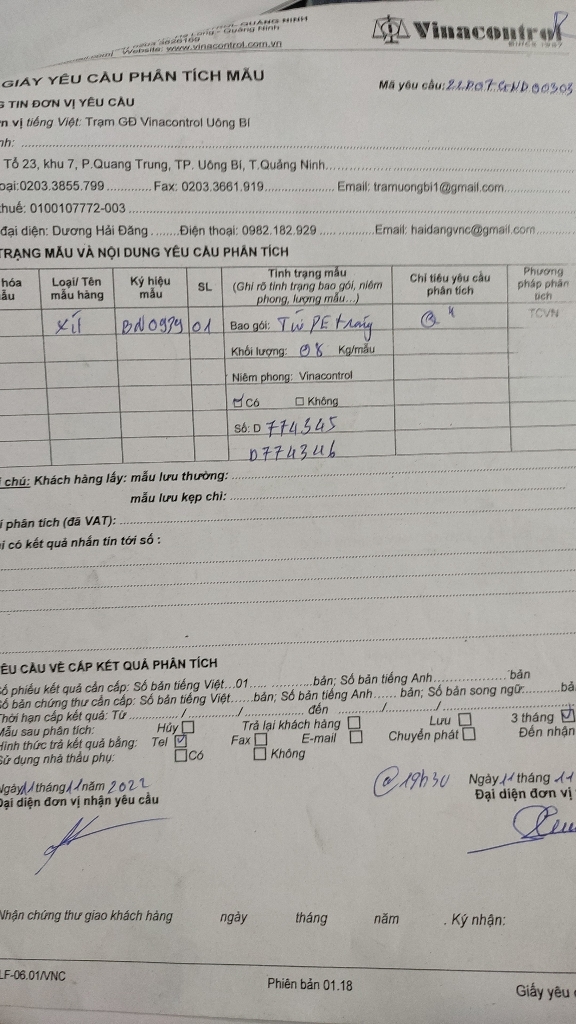 QUẢNG NINH
Long - Quảng Ninh
3826169
Website: www.vinacontrol.com.vn
Vinacontrol
SINCE 1957
GIẤY YÊU CẦU PHÂN TÍCH MẪU
Mã yêu cầu:
TIN ĐƠN VỊ YÊU CẦU
vị tiếng Việt: Trạm GĐ Vinacontrol Uông Bí
Tổ 23, khu 7, P.Quang Trung, TP. Uông Bí, T.Quảng Ninh
0203.3855.799 Fax: 0203.3661.919 Email: tramuongbi1@gmail.com
thuế: 0100107772-003
đại diện: Dương Hải Đăng Điện thoại: 0982.182.929 Email: haidangvnc@gmail.com
TRẠNG MẪU VÀ NỘI DUNG YÊU CẦU PHÂN TÍCH
hóa Loại/ Tên mẫu hàng Ký hiệu mẫu SL Tình trạng mẫu (Ghi rõ tình trạng bao gói, niêm phong, lượng mẫu...) Chỉ tiêu yêu cầu phân tích Phương pháp phân tích
xít BN0979 01 Bao gói: Túi PE trắng TCVN
Khối lượng: 08 Kg/mẫu
Niêm phong: Vinacontrol
☑ Có ☐ Không
Số: D 774345
D774346
chú: Khách hàng lấy: mẫu lưu thường:
mẫu lưu kẹp chì:
phân tích (đã VAT):
có kết quả nhắn tin tới số :
YÊU CẦU VỀ CẤP KẾT QUẢ PHÂN TÍCH
Số phiếu kết quả cần cấp: Số bản tiếng Việt...01 bản; Số bản tiếng Anh bản
Số bản chứng thư cần cấp: Số bản tiếng Việt......bản; Số bản tiếng Anh...... bản; Số bản song ngữ:
Thời hạn cấp kết quả: Từ / / đến / /
Mẫu sau phân tích: Hủy ☐ Trả lại khách hàng ☐ Lưu ☐ 3 tháng ☑
Hình thức trả kết quả bằng: Tel ☑ Fax ☐ E-mail ☐ Chuyển phát ☐ Đến nhận
Sử dụng nhà thầu phụ: ☐ Có ☐ Không
Ngày 11 tháng 11 năm 2022 @ 19h30 Ngày 11 tháng 11
Đại diện đơn vị nhận yêu cầu Đại diện đơn vị
Nhận chứng thư giao khách hàng ngày tháng năm . Ký nhận:
LF-06.01/VNC Phiên bản 01.18 Giấy yêu